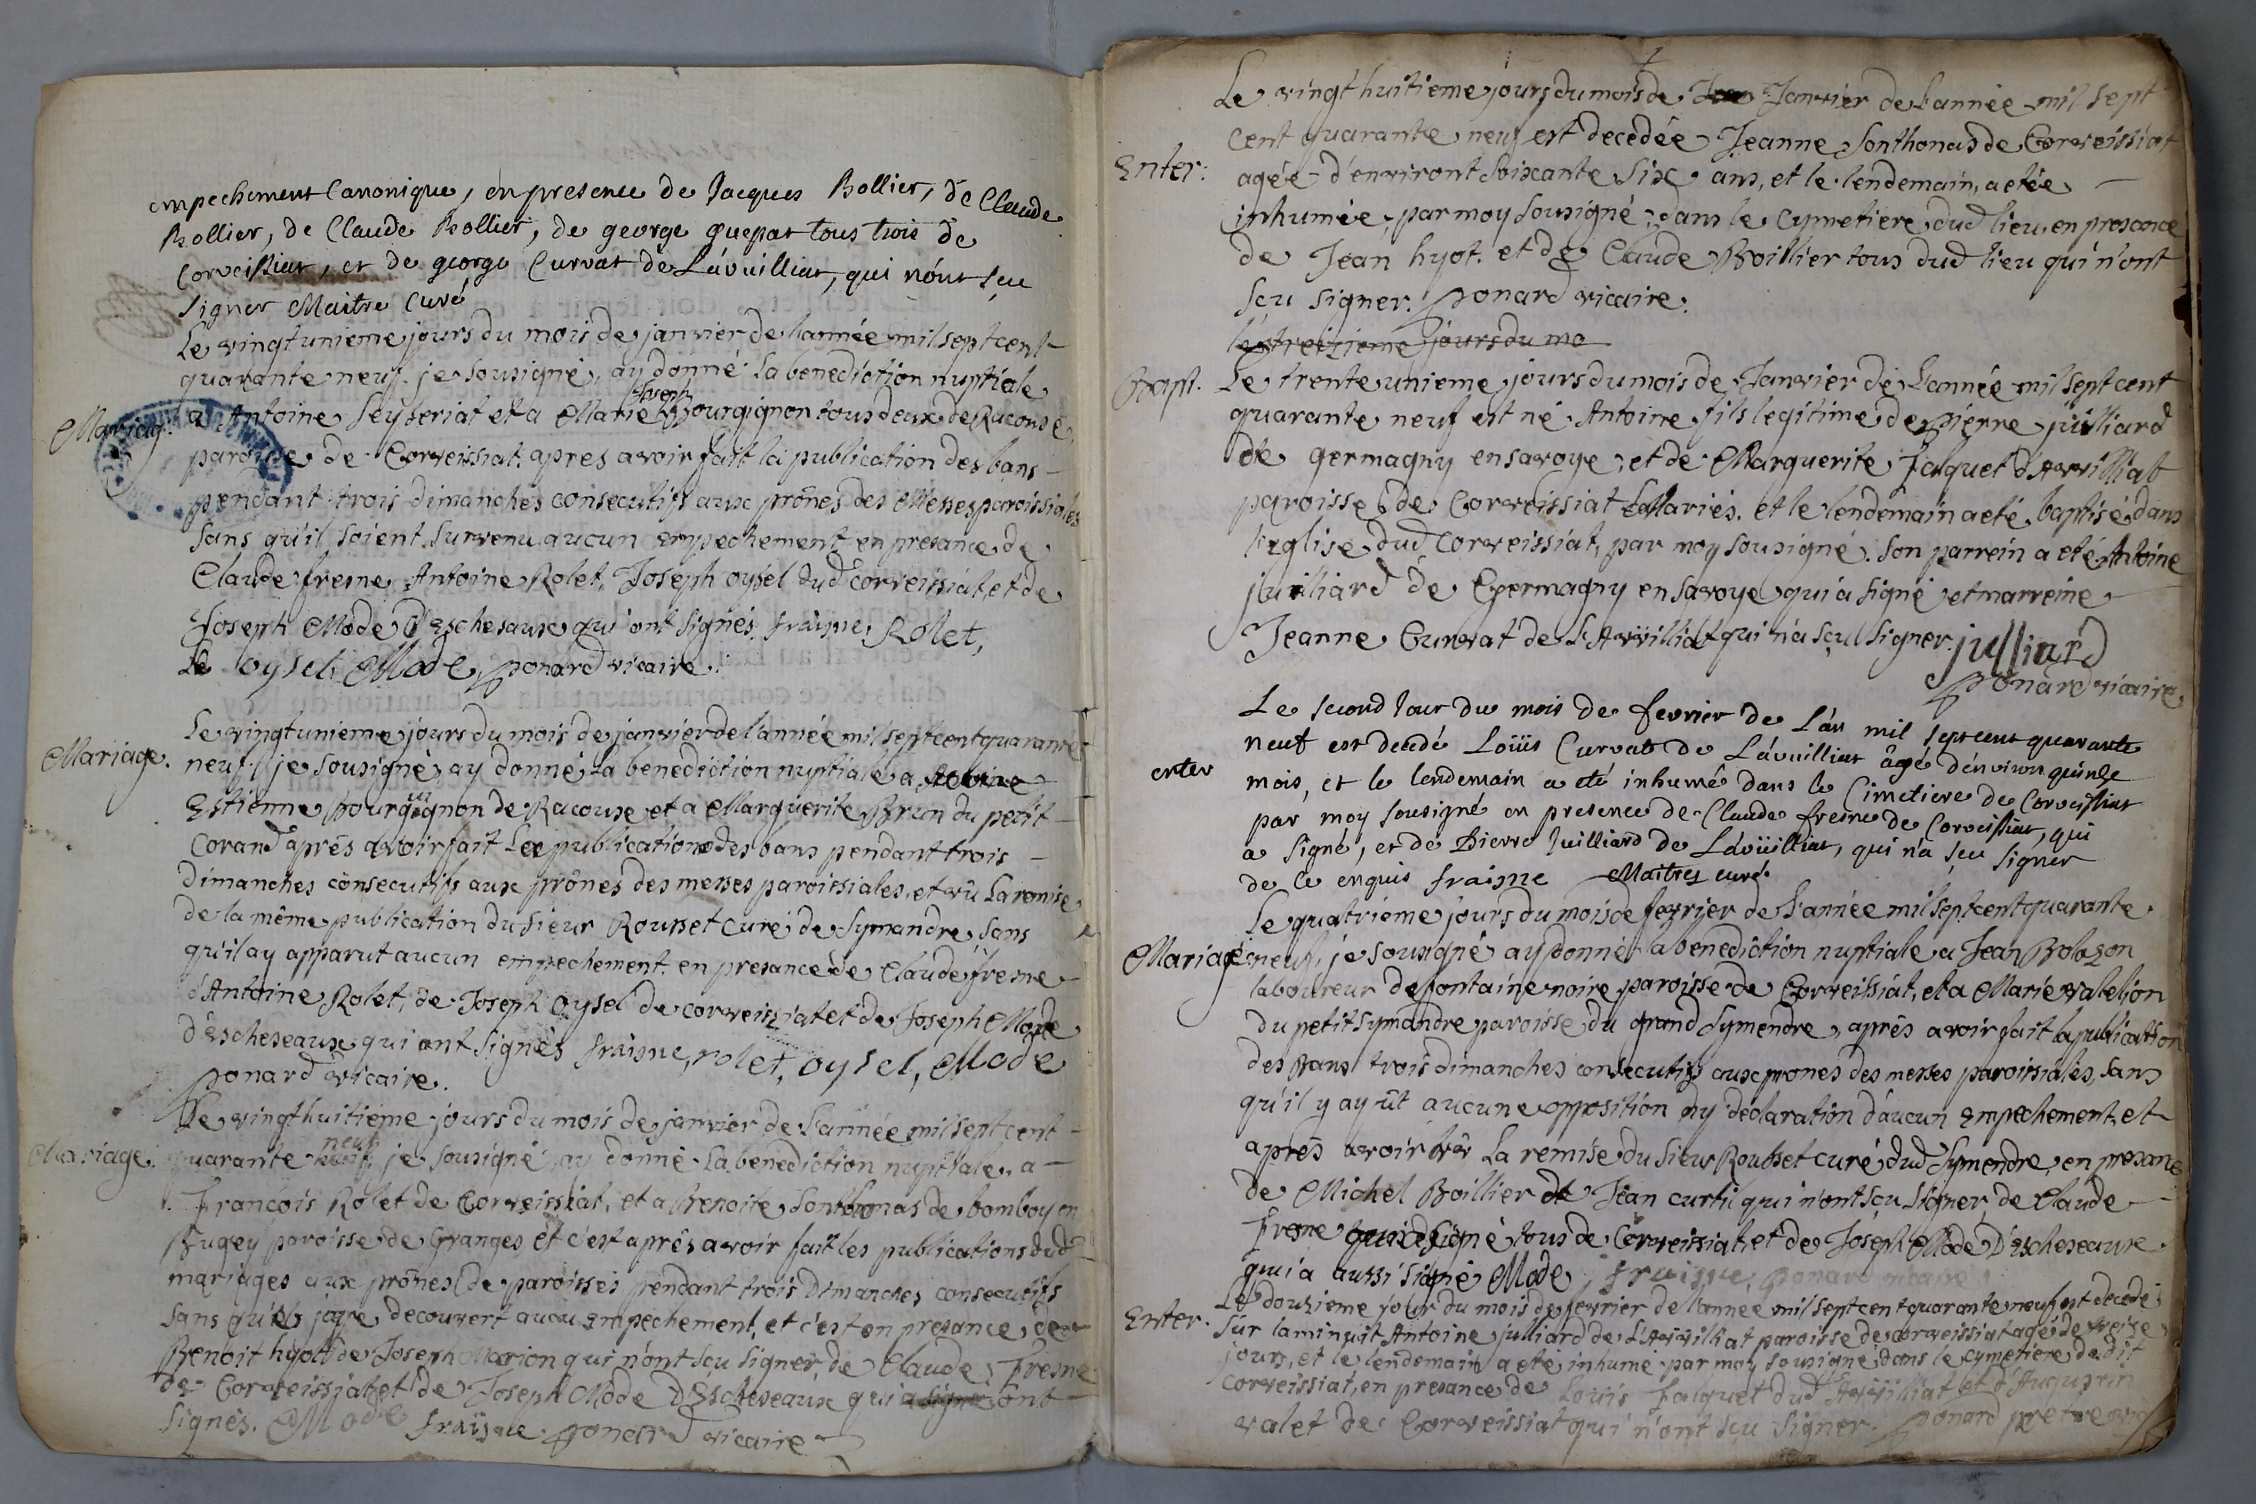 empechement Canonique, en presence de Jacques Bollier, de Claude
Bollier, de Claude Bollier, de george quepat tous trois de
Corveissiat, et de george Curvat de Lavuilliat, qui n'ont sçu
signer Maitre Curé
Le vingt unieme jours du mois de janvier de l'année mil sept cent
quarante neuf. je sousigné, ay donné la benediction nuptiale
Mariag. a Antoine Seyseriat et a Marie Joseph Bourgignon tous deux de Racouse,
paroisse de Corveissiat. apres avoir fait la publication des bans
pendant trois dimanches consecutifs aux prônes des Messes paroissiales
sans qu'il soient survenu aucun empechement en presance de
Claude fresne Antoine Rolet, Joseph oysel dud corveissiat, et de
Joseph Mode d'Eschesaux qui ont signés. fraisne, Rolet,
oysel, Mode, ponard vicaire.
Le vingt unieme jours du mois de janvier de l'année mil sept cent quarante
Mariage. neuf. je sousigné, ay donné la benediction nuptiale a
Estienne Bourguignon de Racouse et a Marguerite Brun du petit
Corand après avoir fait Les publications des bans pendant trois
dimanches consecutifs aux prônes des messes paroissiales, et vû La remise
de la même publication du sieur Rousset curé de Symandre, sans
qu'il ay apparut aucun empechement. en presance de Claude fresne
d'Antoine Rolet, de Joseph Oysel de corveissiat et de Joseph Mode
d'Escheseaux qui ont signés fraisne, rolet, oysel, Mode
ponard vicaire.
Le vingt huitieme jours du mois de janvier de L'année mil sept cent
Mariage. quarante neuf je sousigné ay donné la benediction nuptiale a
François Rolet de Corveissiat, et a Benoite Sonthonas de bomboy en
Bugey paroisse de Granges et c'est après avoir fait les publications dud
mariages aux prônes de paroisses pendant trois Dimanches consecutifs
sans qu'ils decouvert aucun empechement, et c'est en presance de
Benoit hyot de Joseph Marion qui n'ont sçu signer, de Claude Fresne
de Corveissiat et de Joseph Mode d'Escheseaux qui a signé ont
signés. Mode fraisne ponard vicaire
Le vingt huitieme jours du mois de Janvier de L'année mil sept
cent quarante neuf est decedée Jeanne Sonthonas de Corveissiat
Enter: agée d'environt soixante six ans, et le lendemain, a etée
inhumée, par moy sousigné, dans le Cymetiere dud lieu en presance
de Jean hyot. et de Claude Boillier tous dud lieu qui n'ont
sçu signer. ponard vicaire.
le treizieme jours du mo
Bapt. Le trente unieme jours du mois de Janvier de L'année mil sept cent
quarante neuf est né Antoine fils legitime de pierre juilliard
de germagny en savoye, et de Marguerite Jalquet d'Arvilliat
paroisse de Corveissiat Mariés. et le lendemain a eté baptisé dans
l'eglise dud Corveissiat, par moy sousigné. Son parrein a eté Antoine
juilliard de Germagny en savoye qui a signé et marreine
Jeanne Curvat de L'Arvilliat qui n'a sçu signer. julliard
ponard vicaire
Le second Jour du mois de fevrier de L'an mil sept cent quarante
neuf est decedé Loüis Curvat de Lávuilliat âgé d'environ quinze
enter mois, et le lendemain a eté inhumé dans le Cimetiere de Corveissiat
par moy sousigné en presence de Claude fresne de Corveissiat, qui
a signé, et de Pierre Juilliard de Lávüilliat, qui n'a sçu signer
de ce enquis fraisne Maitres curé.
Le quatrieme jours du mois de fevrier de L'année mil sept cent quarante
Mariage neuf. je sousigné ay donné la benediction nuptiale a Jean Bolozon
laboureur de fontaine noire paroisse de Corveissiat, et a Marie vatelion
du petit symandre paroisse du grand Symendre, après avoir fait la publication
des Bans trois dimanches consecutifs aux prones des messes paroissiales, sans
qu'il y ay ût aucune opposition ny declaration d'aucun empechement, et
après avoir vû La remise du sieur Rousset curé dud Symendre, en presane
de Michel Boillier de Jean curti qui n'ont sçu signer, de Claude
Fresne signé tous de Corveissiat, et de Joseph Mode D'Escheseaux
qui a aussi signé Mode, fraisne, ponard vicaire
Le douzieme jour du mois de fevrier de l'année mil sept cent quarante neuf est decedé
Enter. sur la minuit Antoine julliard de L'Arvilliat paroisse de corveissiat agé de treize
jours, et le lendemain a eté inhumé par moy sousigné dans le cymetiere dudit
corveissiat, en presance de Louis Jalquet dud Arvilliat et d'Augustin
valet de Corveissiat qui n'ont sçu signer. ponard pretre